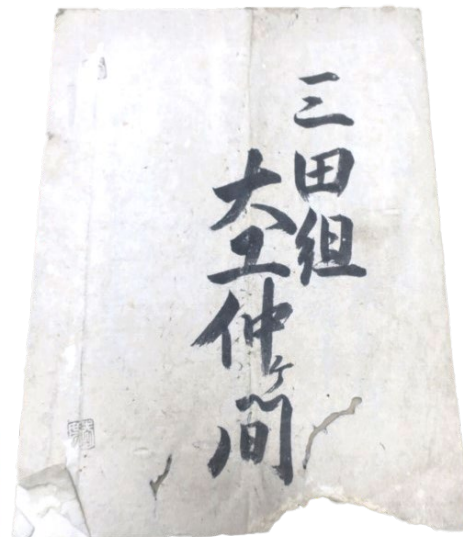 三田組
大工仲ケ間